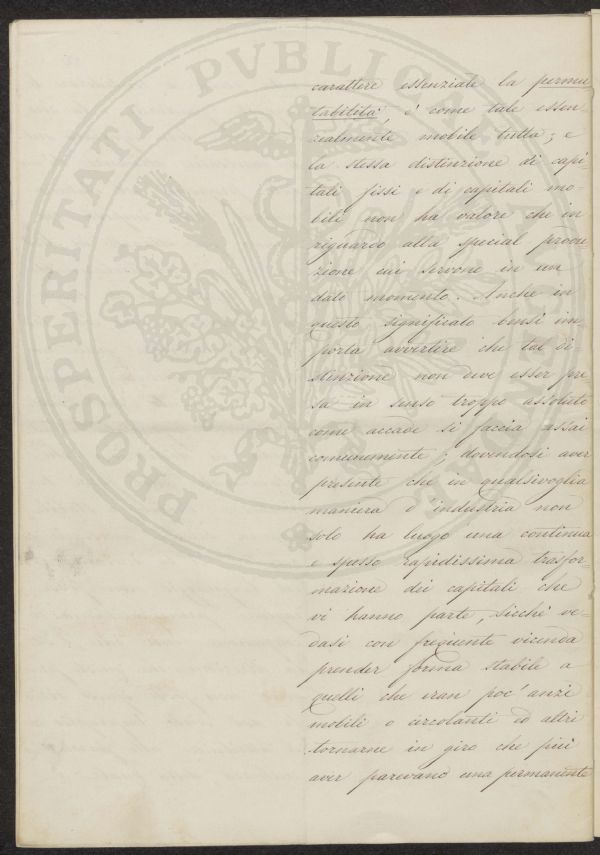 carattere essenziale la permu-
tabilità, è come tale essen
zialmente mobile tutta; e
la stessa distinzione di capi-
tali fissi e di capitali mo-
bili non ha valore che in
riguardo alla special produ
zione cui servono in un
dato momento. Anche in
questo significato bensì im
porta avvertire che tal di
stinzione non deve esser pre-
sa in senso troppo assoluto
come accade si faccia assai
comunemente; dovendosi aver
presente che in qualsivoglia
maniera d'industria non
solo ha luogo una continua
e spesso rapidissima trasfor-
mazione dei capitali che
vi hanno parte, sicchè ve-
dasi con frequente vicenda
prender forma stabile a
quelli che eran poc'anzi
mobili o circolanti ed altri
tornarne in giro che più
aver parevano una permanente
PROSPERITATI PVBLICAE